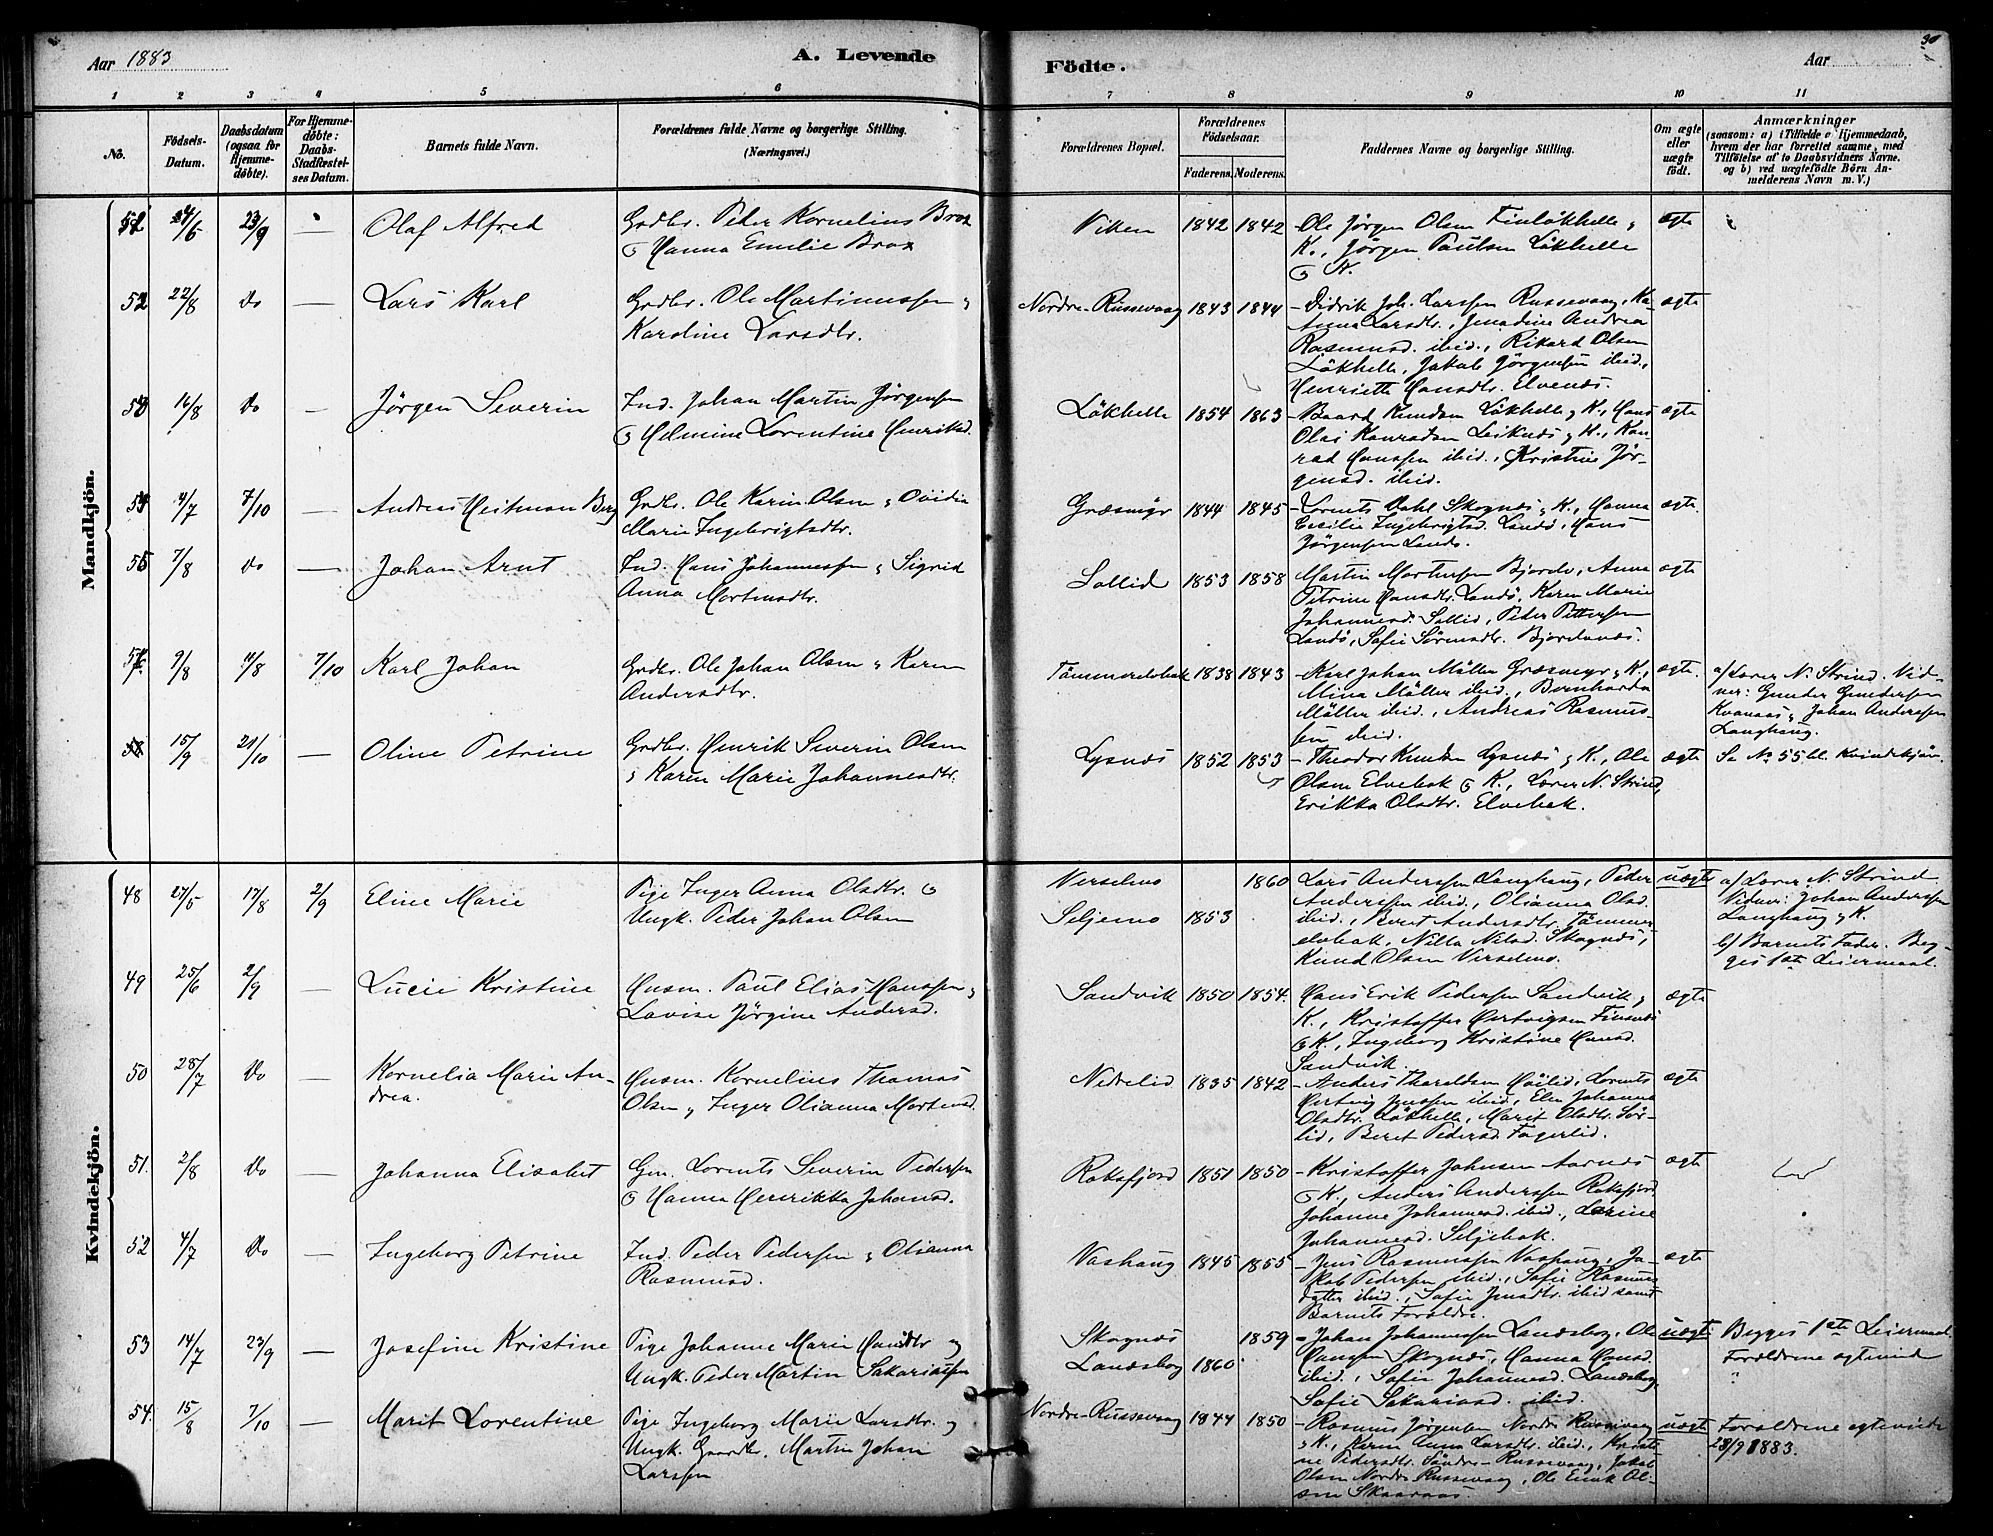 Aar 1883
A. Levende
Födte.
Aar
30
1 2 3 4 5 6 7 8 9 10 11
No.
Födsels-Datum.
Daabsdatum (ogsaa for Hjemme-döbte).
For Hjemme-döbte: Daabs-Stadfæstel-ses Datum.
Barnets fulde Navn.
Forældrenes fulde Navne og borgerlige Stilling.
(Næringsvei.)
Forældrenes Bopæl.
Forældrenes Födselsaar.
Faderens. Moderens.
Faddernes Navne og borgerlige Stilling.
Om ægte eller uægte födt.
Anmærkninger
(saasom: a) i Tilfælde af Hjemmedaab,
hvem der har forrettet samme, med
Tilföielse af to Daabsvidners Navne.
og b) ved uægtefödte Börn An-
melderens Navn m. V.)
Mandkjön.
23/9 — Olaf Alfred
Grdbr. Peder Kornelius Brox
& Hanna Emilie Brox
Viken 1842 1842
Ole Jørgen Olsen Finløkhelle &
K., Jørgen Paulsen Løkhelle
& K.
ægte
52 22/8 Do — Lars Karl
Grdbr. Ole Martinussen &
Karoline Larsdtr.
Nordre-Russevaag 1843 1844
Didrik Joh. Larssen Russevaag, Ka-
Anna Larsdtr., Jensine Andrea
Rasmusd. ibid., Rikard Olsen
Løkhelle, Jakob Jørgensen ibid.,
Henriette Hansdtr. Elvenes.
ægte
53 16/8 Do — Jørgen Severin
Ind. Johan Martin Jørgensen
& Helmine Lorentine Henriksd.
Løkhelle 1854 1863
Baard Knudsen Løkhelle & K., Hans
Olai Konradsen Leiknes & K., Kon-
rad Hanssen ibid., Kristine Jør-
gensd. ibid.
ægte
54 4/7 7/10 — Andreas Heitman Berg
Grdbr. Ole Karin. Olsen & Ovidia
Marie Ingebrigtsdtr.
Græsmyr 1844 1845
Lorents Dahl Skognes & K., Hanna
Cecilie Ingebrigtsd. Landø, Hans
Jørgensen Landø.
ægte.
55 7/8 Do — Johan Arnt
Ind. Hans Johannessen & Sigrid
Anna Mortensdtr.
Sollid 1853 1858
Martin Mortensen Bjorelv, Anna
Petrine Hansdtr. Landø, Karen Marie
Johannesd. Sollid, Peder Pettersen
Landø, Sofie Sørensdtr. Bjorelvnes.
ægte
56 9/8 11/8 7/10 Karl Johan
Grdbr. Ole Johan Olsen & Karen
Andersdtr.
Tømmerelvbak 1838 1843
Karl Johan Møller Græsmyr & K.,
Mina Møller ibid., Bernharda
Møller ibid., Andreas Rasmus-
sen ibid.
ægte.
a/ Lærer N. Strind. Vid-
ner: Gunder Gundersen
Kvanaas & Johan Anderssen
Langhaug.
15/9 21/10 — Oline Petrine
Grdbr. Henrik Severin Olsen
& Karen Marie Johannesdtr.
Lysnes 1852 1853
Theodor Knudsen Lysnes & K., Ole
Olsen Elvebak & K., Lærer N. Strind,
Erikka Olsdtr. Elvebak.
ægte
Se No 55 bl. Kvindekjøn.
Kvindekjön.
48 27/5 17/8 2/9 Eline Marie
Pige Inger Anna Olsdtr. &
Ungk. Peder Johan Olsen
Verselmo 1860
Seljemo 1853
Lars Anderssen Langhaug, Peder
Anderssen ibid., Olianna Olsd.
ibid., Beret Andersdtr. Tømmer-
elvbak, Nilla Nilsd. Skognes,
Knud Olsen Verselmo.
uægte
a/ Lærer N. Strind
Vidner: Johan Anderssen
Langhaug & K.
b/ Barnets Fader. Beg-
ges 1ste Leiermaal.
49 25/6 2/9 Lucie Kristine
Husm. Paul Elias Hanssen &
Lavise Jørgine Andersd.
Sandvik 1850 1854.
Hans Erik Pedersen Sandvik &
K., Kristoffer Hertvigsen Finsnes
& K., Ingeborg Kristine Hansd.
Sandvik.
ægte
50 28/7 Do — Kornelia Marie An-
drea.
Husm. Kornelius Thomas
Olsen & Inger Olianna Mortensd.
Nedrelid 1835 1842
Anders Tharaldsen Høilid, Lorents
Hertvig Jenssen ibid., Elen Johanna
Olsdtr. Løkhelle, Marit Olsdtr. Sør-
lid, Beret Pedersd. Fagerlid.
ægte
51. 2/8 Do — Johanna Elisabet
Gm. Lorents Severin Pedersen
& Hanna Henrikka Johansd.
Røksfjord 1851 1850
Kristoffer Johnsen Aarnes
& K., Anders Anderssen Roksfjord,
Johanne Johannesd. ibid., Lorine
Johannesd. Seljebak.
ægte
52 4/7 Do — Ingeborg Petrine
Ind. Peder Pedersen & Olianna
Rasmusd.
Vashaug 1845 1855
Jens Rasmussen Vashaug, Ja-
kob Pedersen ibid., Sofie Rasmus-
datter ibid., Sofie Jensdtr. ibid samt
Barnets Forældre.
ægte
53 14/7 23/9 — Josefine Kristine
Pige Johanne Marie Hansdtr &
Ungk. Peder Martin Sakariassen
Skognes 1859
Landsbog 1860.
Johan Johannessen Landsbog, Ole
Hansen Skognes, Hanna Hansd.
ibid., Sofie Johannesd. Landsbog,
Sofie Sakariasd. ibid.
uægte
Begges 1ste Leiermaal.
Forældrene egteviede
"
54. 15/8 7/10 — Marit Lorentine
Pige Ingeborg Marie Larsdtr. &
Ungk. Gaardbr. Martin Johan
Larssen
Nordre-Russevaag 1844 1850
Rasmus Jørgensen Nordre Russevaag
& K., Karen Anna Larsdtr. ibid., Kristi-
ne Pedersdtr. Søndre-Russevaag, Jakob
Olsen Nordre Russevaag, Ole Enok Ol-
sen Skaaraas.
uægte
Forældrene egteviede
23/9 1883.